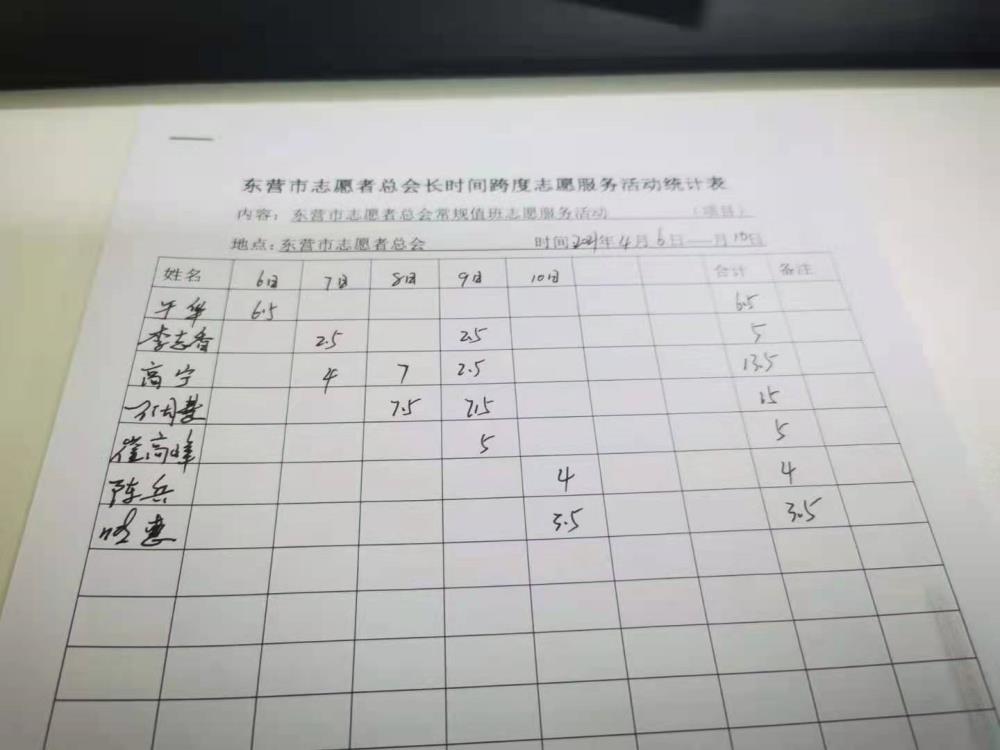 东营市志愿者总会长时间跨度志愿服务活动统计表
内容：东营市志愿者总会常规值班志愿服务活动 （项目）
地点：东营市志愿者总会 时间2021年4月6日—月10日
姓名 6日 7日 8日 9日 10日 合计 备注
6.5 6.5
李志香 2.5 2.5 5
高宁 4 7 2.5 13.5
7.5 7.5 15
崔高峰 5 5
陈兵 4 4
3.5 3.5